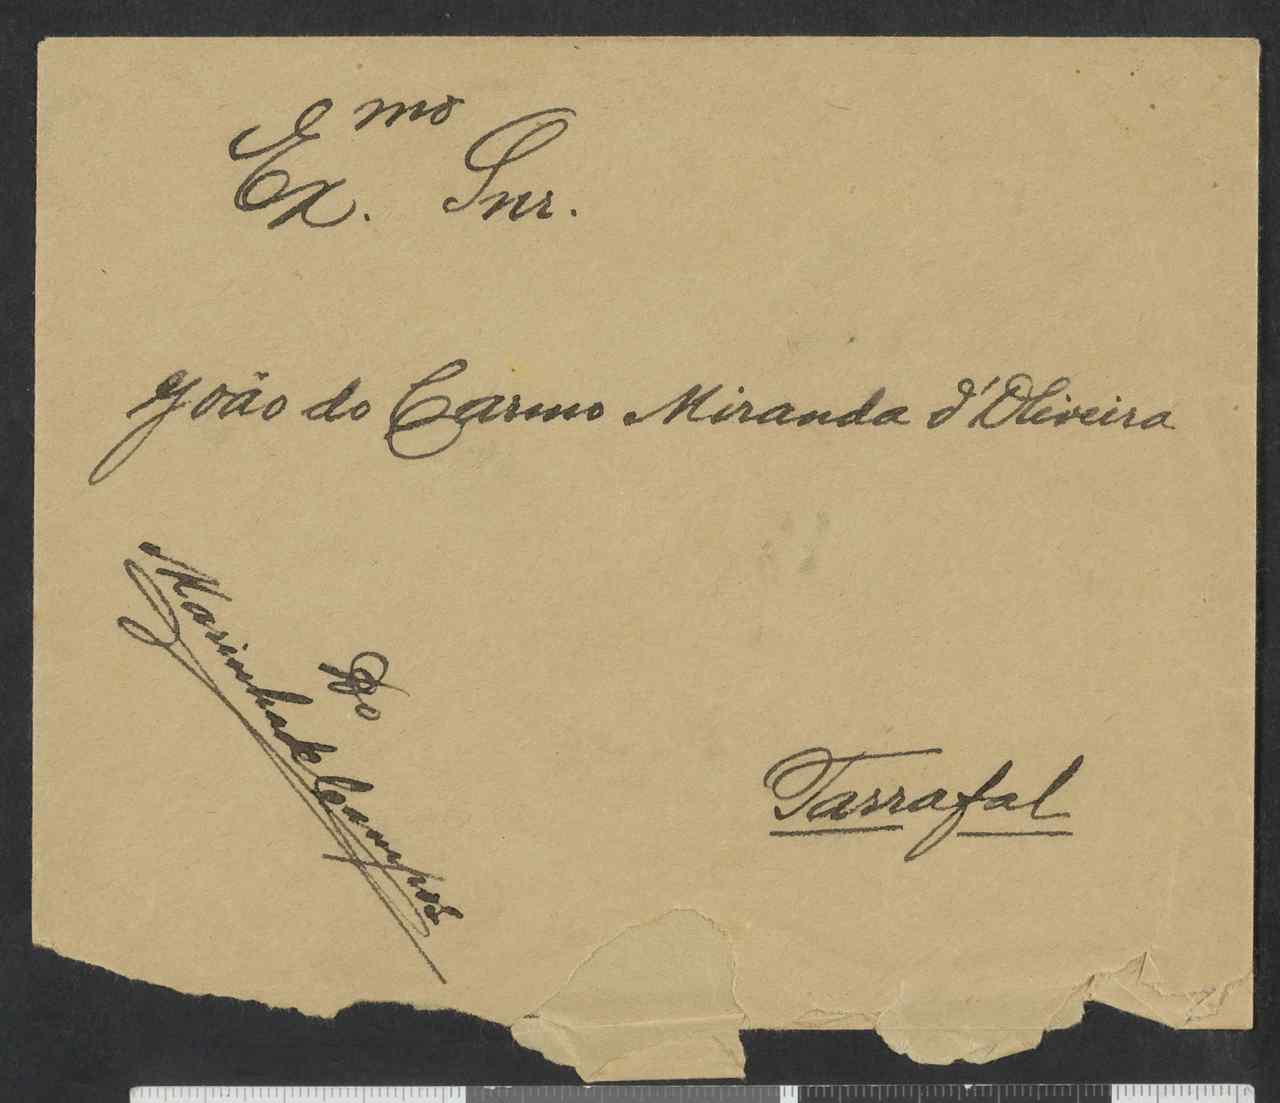 Ex.mo Snr.
João do Carmo Miranda d'Oliveira
Do
Marinha de Campos
Tarrafal